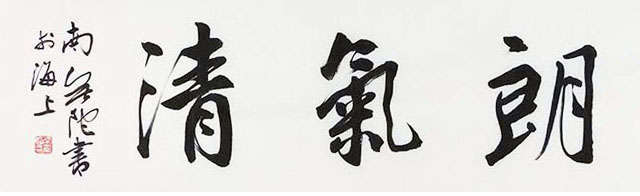 朗氣清
南無陀書
於海上